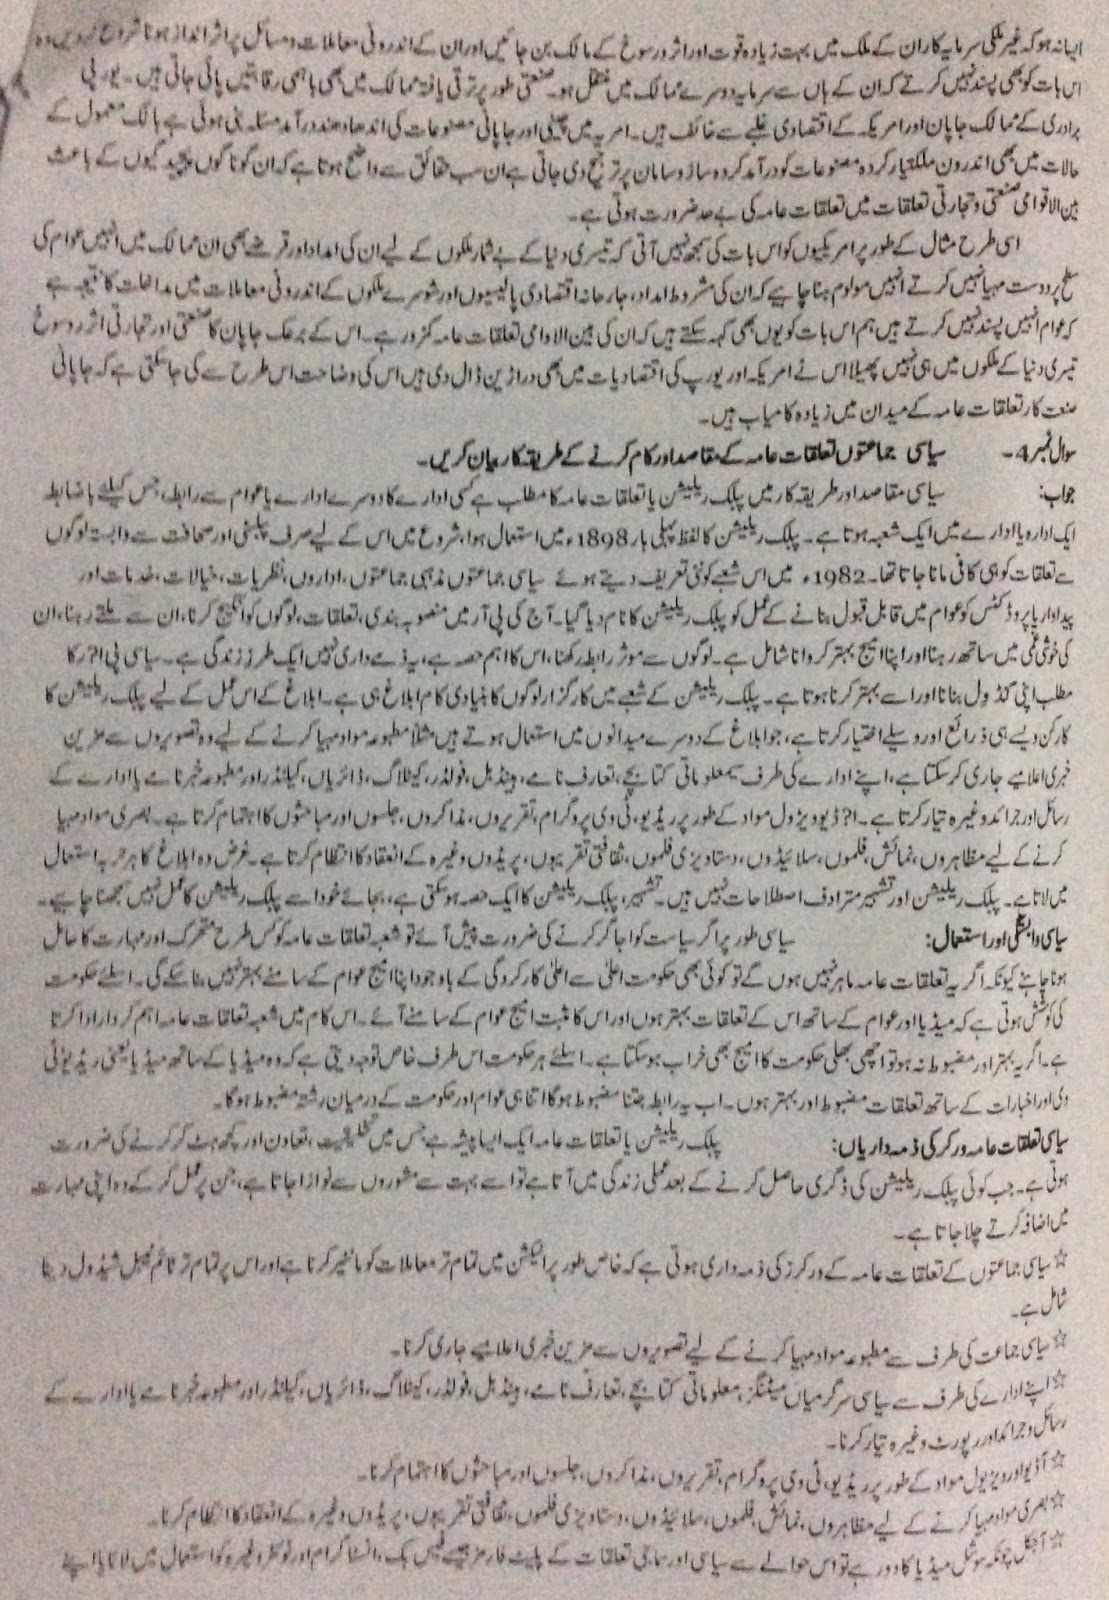 ایسا نہ ہو کہ غیر ملکی سرمایہ کار ان کے ملک میں بہت زیادہ قوت اور اثر و رسوخ کے مالک بن جائیں اور ان کے اندرونی معاملات و مسائل پر اثر انداز ہونا شروع کر دیں وہ
اس بات کو بھی پسند نہیں کرتے کہ ان کے ہاں سے سرمایہ دوسرے ممالک میں منتقل ہو۔ صنعتی طور پر ترقی یافتہ ممالک میں بھی باہمی رقابتیں پائی جاتی ہیں۔ یورپی
برادری کے ممالک جاپان اور امریکہ کے اقتصادی غلبے سے خائف ہیں۔ امریہ میں چینی اور جاپانی مصنوعات کی اندھا دھند درآمد مسئلہ بنی ہوئی ہے ہالک معمول کے
حالات میں بھی اندرون ملک تیار کردہ مصنوعات کو درآمد کردہ ساز و سامان پر ترجیح دی جاتی ہے ان سب حقائق سے واضح ہوتا ہے کہ ان گوناگوں پیچیدگیوں کے باعث
بین الاقوامی صنعتی و تجارتی تعلقات میں تعلقات عامہ کی بے حد ضرورت ہوتی ہے۔
اسی طرح مثال کے طور پر امریکیوں کو اس بات کی سمجھ نہیں آتی کہ تیسری دنیا کے بے شمار ملکوں کے لیے ان کی امداد اور قرضے بھی ان ممالک میں انہیں عوام کی
سطح پر دوست مہیا نہیں کرتے انہیں مولوم ہنا چاہیے کہ ان کی مشروط امداد، جارحانہ اقتصادی پالیسیوں اور شوسرے ملکوں کے اندرونی معاملات میں مداخلت کا نتیجہ ہے
کہ عوام انہیں پسند نہیں کرتے ہیں ہم اس بات کو یوں بھی کہہ سکتے ہیں کہ ان کی بین الاوامی تعلقات عامہ کمزور ہے۔ اس کے برعک جاپان کا صنعتی اور تجارتی اثر رسوخ
تیسری دنیا کے ملکوں میں ہی نہیں پھیلا اس نے امریکہ اور یورپ کی اقتصادیات میں بھی دراڑیں ڈال دی ہیں اس کی وضاحت اس طرح سے کی جا سکتی ہے کہ جاپانی
صنعت کار تعلقات عامہ کے میدان میں زیادہ کامیاب ہیں۔
سوال نمبر 4۔ سیاسی جماعتوں تعلقات عامہ کے مقاصد اور کام کرنے کے طریقہ کار بیان کریں۔
جواب: سیاسی مقاصد اور طریقہ کار میں پبلک ریلیشن یا تعلقات عامہ کا مطلب ہے کسی ادارے کا دوسرے ادارے یا عوام سے رابطہ، جس کیلئے باضابطہ
ایک ادارہ یا ادارے میں ایک شعبہ ہوتا ہے۔ پبلک ریلیشن کا لفظ پہلی بار 1898ء میں استعمال ہوا، شروع میں اس کے لیے صرف پبلسٹی اور صحافت سے وابستہ لوگوں
سے تعلقات کو ہی کافی مانا جاتا تھا۔ 1982ء میں اس شعبے کو نئی تعریف دیتے ہوئے سیاسی جماعتوں مذہبی جماعتوں، اداروں، نظریات، خیالات، خدمات اور
پیداوار یا پروڈکٹس کو عوام میں قابل قبول بنانے کے عمل کو پبلک ریلیشن کا نام دیا گیا۔ آج کی پی آر میں منصوبہ بندی، تعلقات، لوگوں کو انگیج کرنا، ان سے ملتے رہنا، ان
کی خوشی غمی میں ساتھ رہنا اور اپنا امیج بہتر کروانا شامل ہے۔ لوگوں سے موثر رابطہ رکھنا، اس کا اہم حصہ ہے، یہ ذمے داری نہیں ایک طرز زندگی ہے۔ سیاسی پی ا?ر کا
مطلب اپنی گڈ وِل بنانا اور اسے بہتر کرنا ہوتا ہے۔ پبلک ریلیشن کے شعبے میں کارگزار لوگوں کا بنیادی کام ابلاغ ہی ہے۔ ابلاغ کے اس عمل کے لیے پبلک ریلیشن کا
کارکن ویسے ہی ذرائع اور وسیلے اختیار کرتا ہے، جو ابلاغ کے دوسرے میدانوں میں استعمال ہوتے ہیں مثلاً مطبوعہ مواد مہیا کرنے کے لیے وہ تصویروں سے مزین
خبری اعلامیے جاری کر سکتا ہے، اپنے ادارے کی طرف سے معلوماتی کتابچے، تعارف نامے، ہینڈبل، فولڈر، کیٹلاگ، ڈائریاں، کیلنڈر اور مطبوعہ خبرنامے یا ادارے کے
رسائل اور جرائد وغیرہ تیار کرتا ہے۔ ا?ڈیو ویژول مواد کے طور پر ریڈیو، ٹی وی پروگرام، تقریروں، مذاکروں، جلسوں اور مباحثوں کا اہتمام کرتا ہے۔ بصری مواد مہیا
کرنے کے لیے مظاہروں، نمائش، فلموں، سلائیڈوں، دستاویزی فلموں، ثقافتی تقریبوں، پریڈوں وغیرہ کے انعقاد کا انتظام کرتا ہے۔ غرض وہ ابلاغ کا ہر حربہ استعمال
میں لاتا ہے۔ پبلک ریلیشن اور تشہیر مترادف اصطلاحات نہیں ہیں۔ تشہیر، پبلک ریلیشن کا ایک حصہ ہو سکتی ہے، بجائے خود اسے پبلک ریلیشن کا عمل نہیں سمجھنا چاہیے۔
سیاسی وابستگی اور استعمال: سیاسی طور پر اگر سیاست کو اجاگر کرنے کی ضرورت پیش آئے تو شعبہ تعلقات عامہ کو کس طرح متحرک اور مہارت کا حامل
ہونا چاہئے کیونکہ اگر یہ تعلقات عامہ ماہر نہیں ہوں گے تو کوئی بھی حکومت اعلیٰ سے اعلیٰ کارکردگی کے باوجود اپنا امیج عوام کے سامنے بہتر نہیں بنا سکے گی۔ اسلئے حکومت
کی کوشش ہوتی ہے کہ میڈیا اور عوام کے ساتھ اس کے تعلقات بہتر ہوں اور اس کا مثبت امیج عوام کے سامنے آئے۔ اس کام میں شعبہ تعلقات عامہ اہم کردار ادا کرتا
ہے۔ اگر یہ بہتر اور مضبوط نہ ہو تو اچھی بھلی حکومت کا امیج بھی خراب ہو سکتا ہے۔ اسلئے ہر حکومت اس طرف خاص توجہ دیتی ہے کہ وہ میڈیا کے ساتھ میڈیا یعنی ریڈیو، ٹی
وی اور اخبارات کے ساتھ تعلقات مضبوط اور بہتر ہوں۔ اب یہ رابطہ جتنا مضبوط ہوگا اتنا ہی عوام اور حکومت کے درمیان رشتہ مضبوط ہوگا۔
سیاسی تعلقات عامہ ورکر کی ذمہ داریاں: پبلک ریلیشن یا تعلقات عامہ ایک ایسا پیشہ ہے جس میں تخلیقیت، تعاون اور کچھ ہٹ کر کرنے کی ضرورت
ہوتی ہے۔ جب کوئی پبلک ریلیشن کی ڈگری حاصل کرنے کے بعد عملی زندگی میں آتا ہے تو اسے بہت سے مشوروں سے نوازا جاتا ہے، جن پر عمل کر کے وہ اپنی مہارت
میں اضافہ کرتے چلا جاتا ہے۔
☆ سیاسی جماعتوں کے تعلقات عامہ کے ورکرز کی ذمہ داری ہوتی ہے کہ خاص طور پر الیکشن میں تمام تر معاملات کو مانیٹر کرنا ہے اور اس پر تمام تر ٹائم ٹیبل شیڈول دینا
شامل ہے۔
☆ سیاسی جماعت کی طرف سے مطبوعہ مواد مہیا کرنے کے لیے تصویروں سے مزین خبری اعلامیے جاری کرنا۔
☆ اپنے ادارے کی طرف سے سیاسی سرگرمیاں میٹنگز، معلوماتی کتابچے، تعارف نامے، ہینڈبل، فولڈر، کیٹلاگ، ڈائریاں، کیلنڈر اور مطبوعہ خبرنامے یا ادارے کے
رسائل و جرائد اور رپورٹ وغیرہ تیار کرنا۔
☆ آڈیو اور ویژیول مواد کے طور پر ریڈیو، ٹی وی پروگرام، تقریروں، مذاکروں، جلسوں اور مباحثوں کا اہتمام کرنا۔
☆ بصری مواد مہیا کرنے کے لیے مظاہروں، نمائش، فلموں، سلائیڈوں، دستاویزی فلموں، ثقافتی تقریبوں، پریڈوں وغیرہ کے انعقاد کا انتظام کرنا۔
☆ آجکل چونکہ سوشل میڈیا کا دور ہے تو اس حوالے سے سیاسی اور سماجی تعلقات کے پلیٹ فارمز جیسے فیس بک، انسٹاگرام اور ٹوئٹر وغیرہ کو استعمال میں لانا یا اپنے